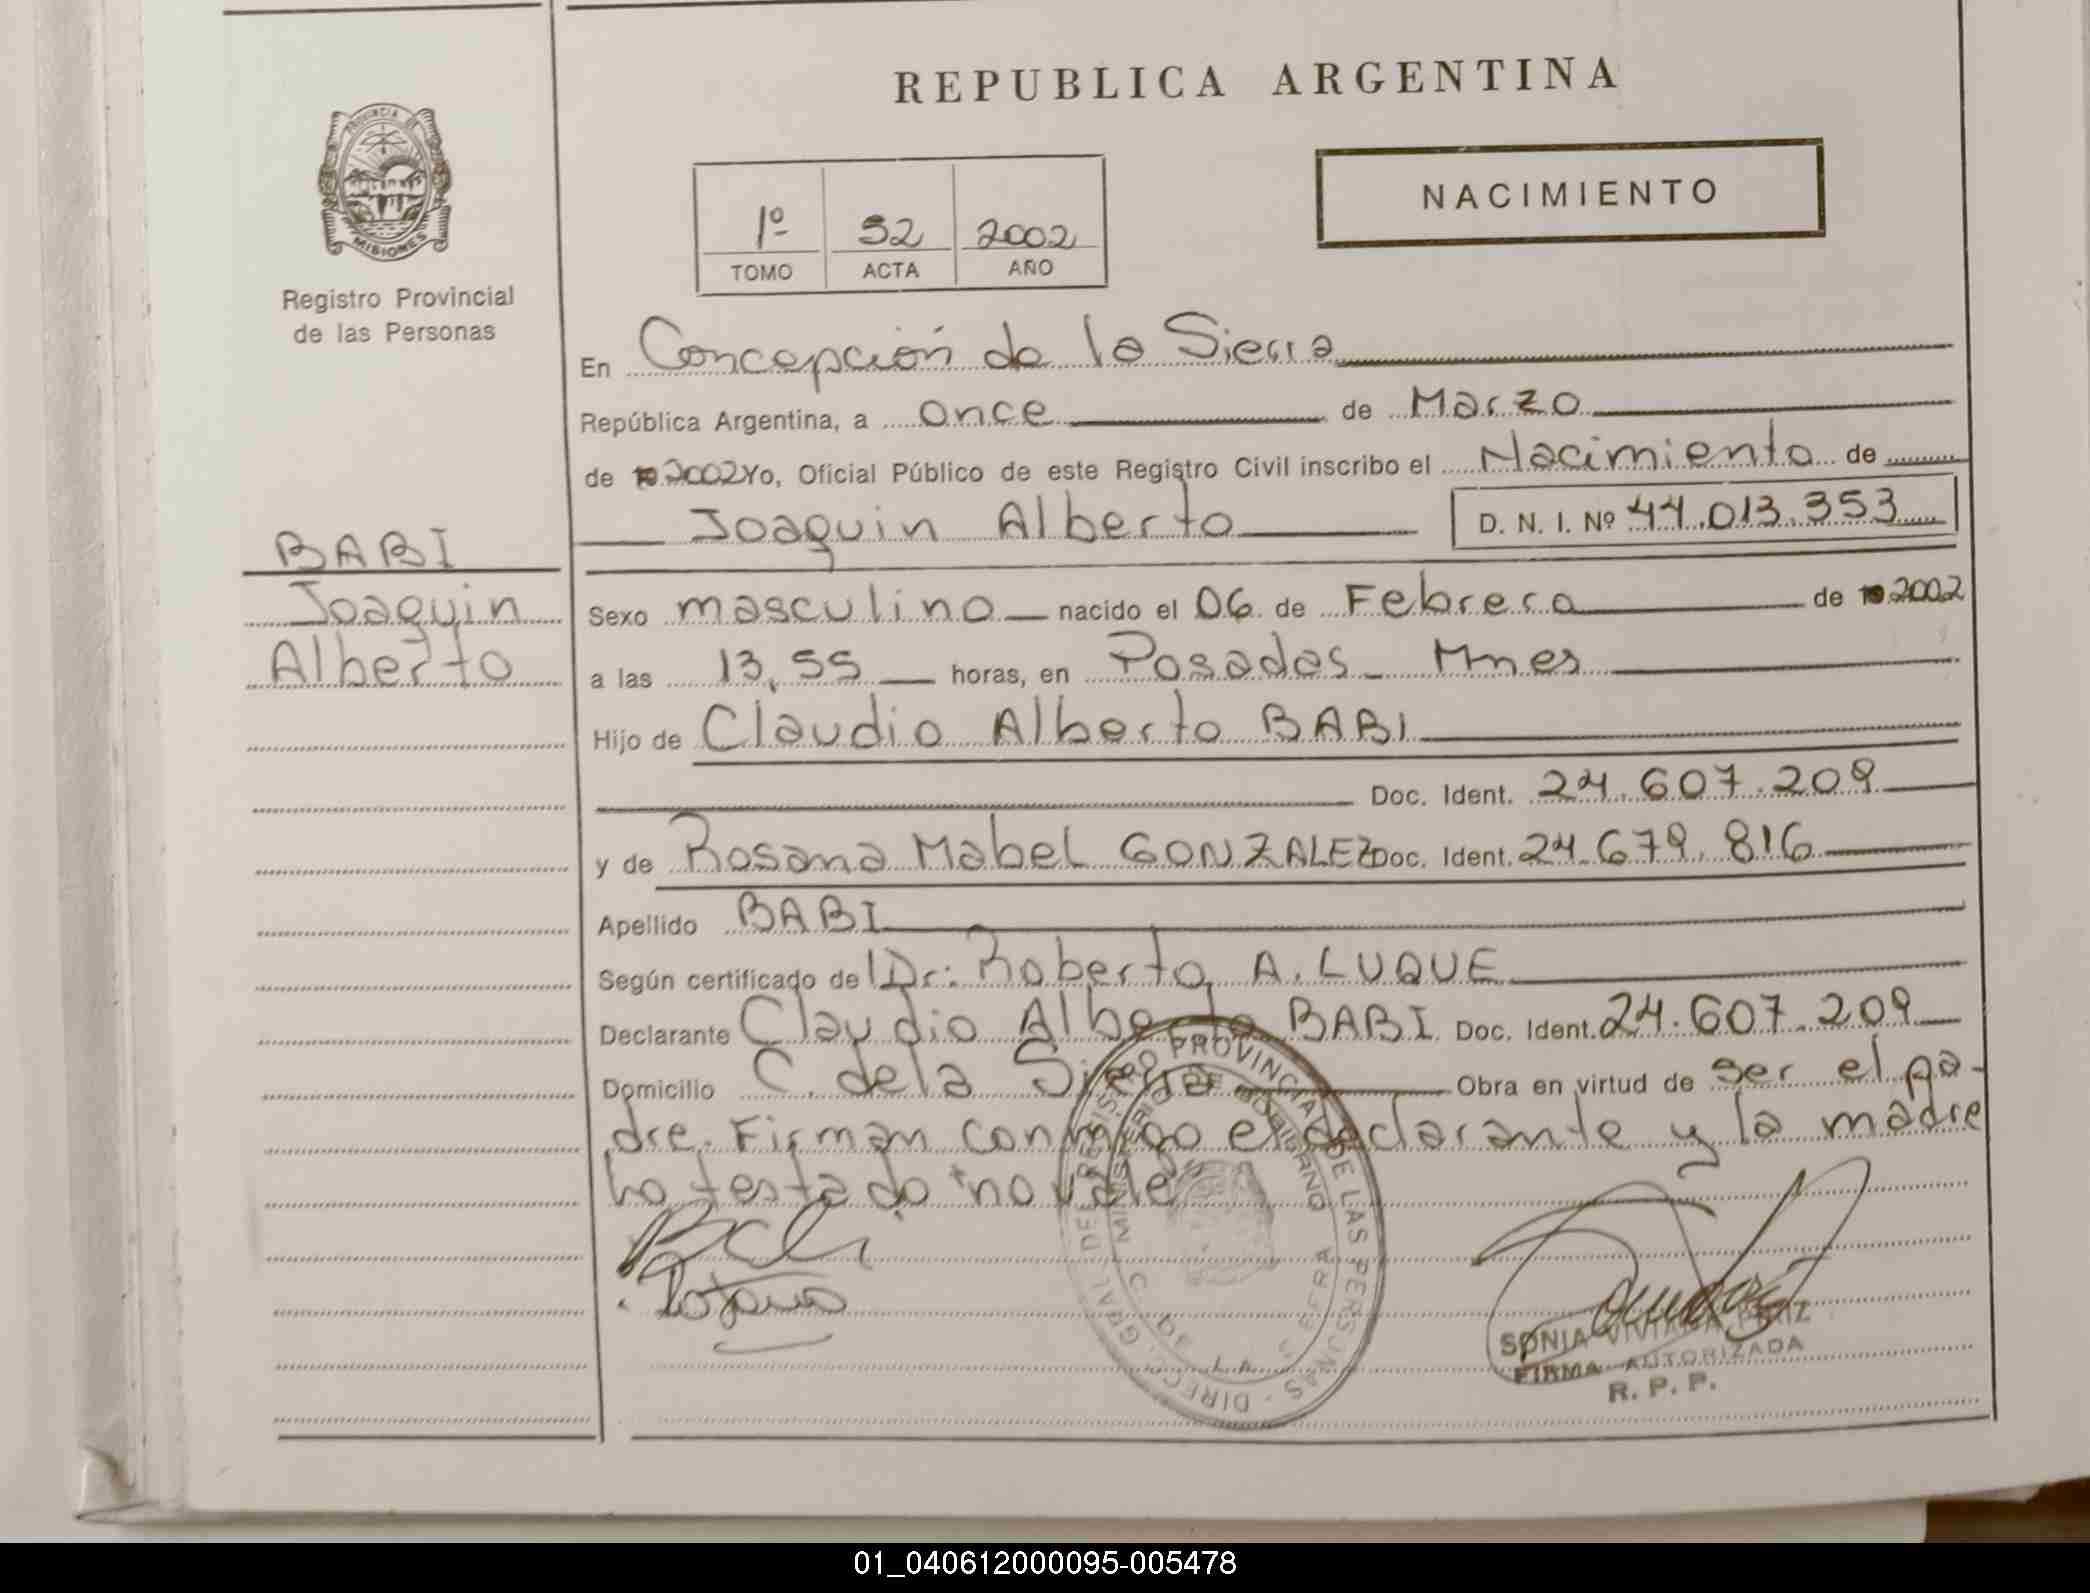 REPUBLICA ARGENTINA
PROVINCIA DE
MISIONES
Registro Provincial
de las Personas
NACIMIENTO
1º 52 2002
TOMO ACTA AÑO
En Concepción de la Sierra
República Argentina, a once de Marzo
de 19 2002 Yo, Oficial Público de este Registro Civil inscribo el Nacimiento de
Joaquin Alberto D. N. I. Nº 44.013.353
BABI
Joaquin
Alberto
Sexo masculino nacido el 06 de Febrero de 19 2002
a las 13,55 horas, en Posadas - Mnes
Hijo de Claudio Alberto BABI
Doc. Ident. 24.607.209
y de Rosana Mabel GONZALEZ Doc. Ident. 24.679.816
Apellido BABI
Según certificado de Dr: Roberto A. LUQUE
Declarante Claudio Alberto BABI Doc. Ident. 24.607.209
Domicilio C. de la Sierra Obra en virtud de ser el pa-
dre. Firman conmigo el declarante y la madre
Lo testado "no vale
DIREC. GRAL. DEL REGISTRO PROVINCIAL DE LAS PERSONAS
MINISTERIO DE GOBIERNO
SONIA VIVIANA
FIRMA AUTORIZADA
R. P. P.
01_040612000095-005478